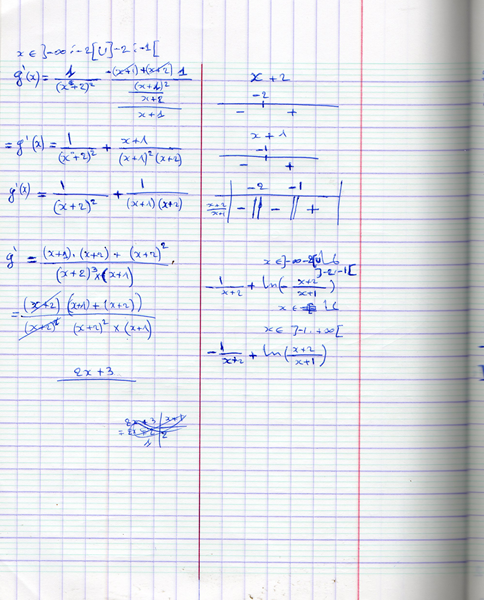 x ∈ ]-∞ ; -2[ U ]-2 ; -1[
g'(x) = 1/(x+2)² -(x+1)+(x+2) 1 / (x+1)² / x+2 / x+1
= g'(x) = 1/(x+2)² + x+1/(x+1)²(x+2)
g'(x) = 1/(x+2)² + 1/(x+1)(x+2)
g' = (x+1)·(x+2) + (x+2)² / (x+2)³ × (x+1)
= (x+2) ((x+1) + (x+2)) / (x+2)² (x+2)² × (x+1)
2x + 3
x + 2
-2
- +
x + 1
-1
- +
-2 -1
x+2/x+1 - || - || +
x ∈ ]-∞ -2[ U
]-2 -1[
1/x+2 + ln(- x+2/x+1)
x ∈
x ∈ ]-1. +∞[
-1/x+2 + ln(x+2/x+1)